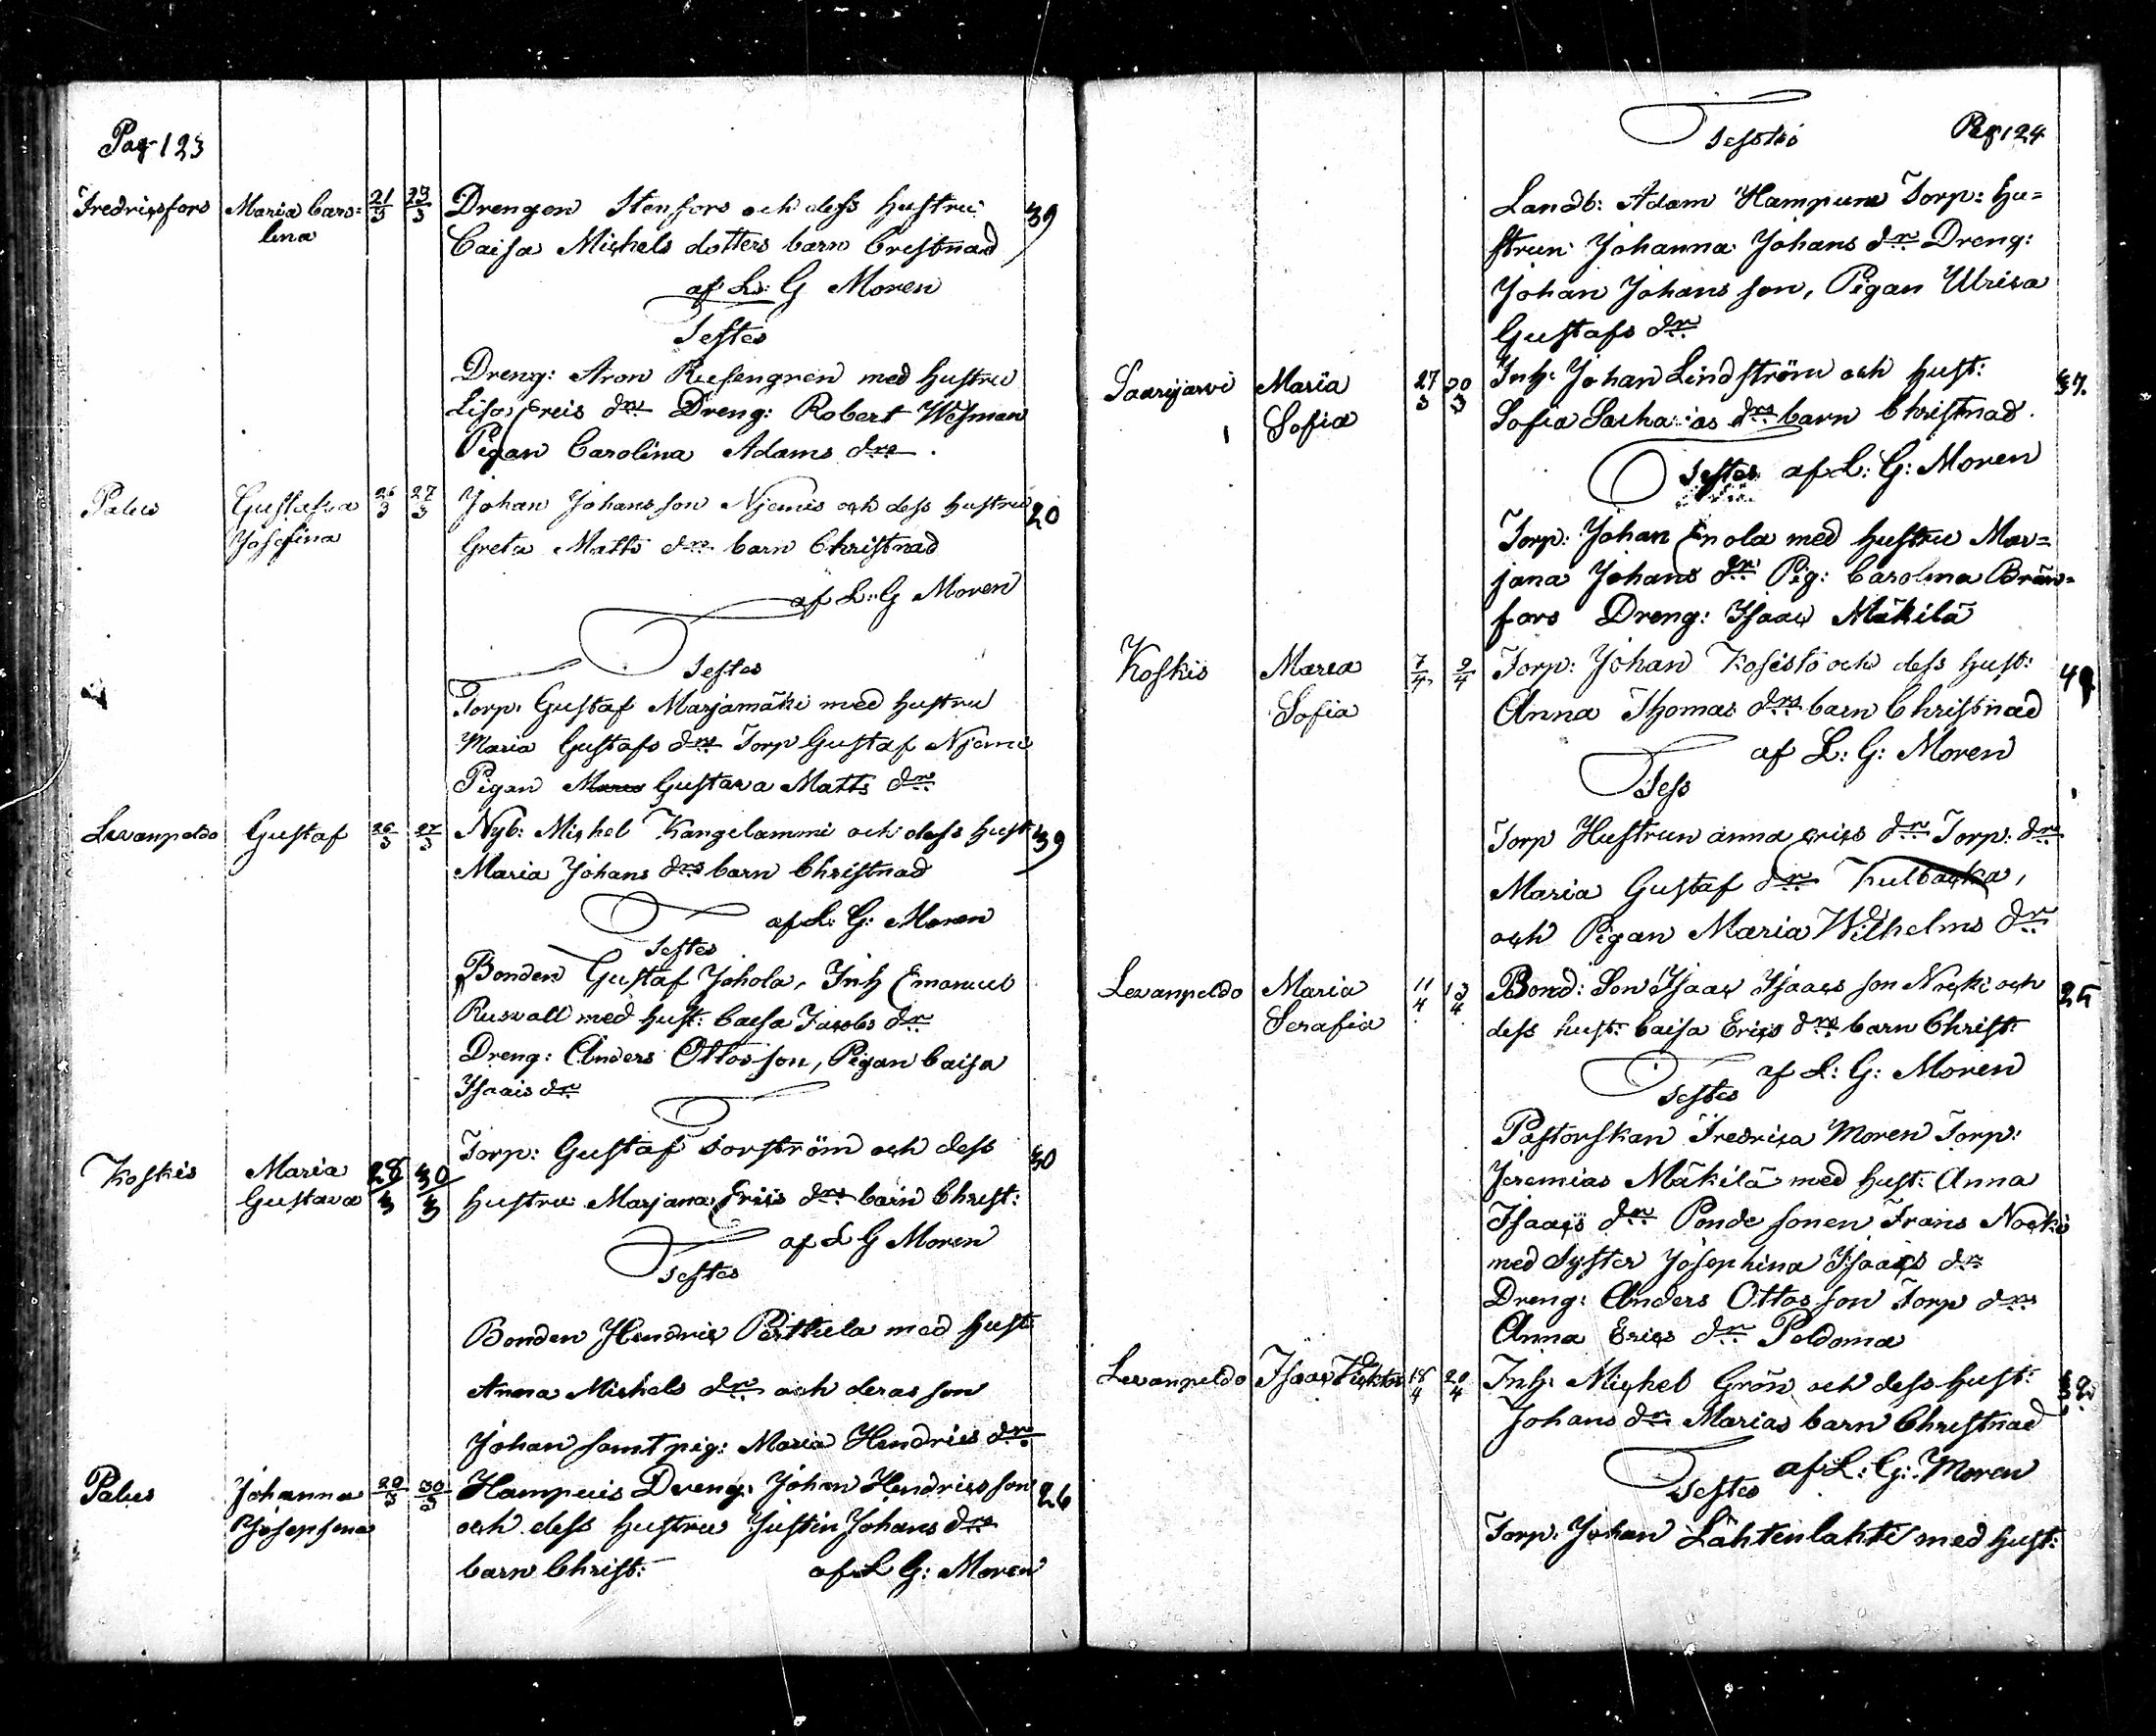 Pag 123
Fredricsfors Maria Caro= 21/3 23/3 Drengen Stenfors och dess hustru 39
lina Caisa Michels dotters barn Crestnad
af L: G Moren
Testes
Dreng: Aron Rusengren med hustru
Lisa Ereis dr Dreng: Robert Wesman
Pigan Carolina Adams dr.
Palus Gustafva 26/3 27/3 Johan Johansson Njemis och dess hustru 20
Josefina Greta Matts dr barn Christnad
af L: G Moren
Testes
Torp: Gustaf Marjamäki med hustru
Maria Gustafs dr Torp Gustaf Njemi
Pigan Gustava Matts dr
Levanpeldo Gustaf 26/3 27/3 Nyb: Michel Kangelammi och dess hust 39
Maria Johans drs barn Christnad
af L: G: Moren
Testes
Bonden Gustaf Johola, Inh Emanuel
Rusvall med hust: Caesa Jacobs dr
Dreng: Anders Ottosson, Pigan Caisa
Isacis dr
Koskis Maria 28/3 30/3 Torp: Gustaf Torström och dess 30
Gustava hustru Marjana Eriis drs barn Christ:
af L G Moren
Testes
Bonden Hendric Perttula med hust
Anna Michels dr och deras son
Johan samt pig: Maria Hendrics dr
Palus Johanna 29/3 30/3 Hampuis Dreng: Johan Hendricsson 26
Josephina och dess hustru Justin Johans drs
barn Christ: af L G: Moren
Testes Pag 124
Landb: Adam Hampune Torp: hu=
strun Johanna Johans dr Dreng:
Johan Johansson, Pigan Ulrica
Gustafs dr
Saarijarvi Maria 27/3 30/3 Inh: Johan Lindström och hust: 37.
Sofia Sofia drs barn Christnad.
Testes af L: G: Moren
Torp: Johan Enola med hustru Mar=
jana Johans dr Pig: Carolina Brän=
fors Dreng: Isaac Mäkilä
Koskis Maria 7/4 9/4 Torp: Johan Kosisto och dess hust: 49
Sofia Anna Thomas drs barn Christnad
af L: G: Moren
Tess
Torp Hustrun anna Erics dr Torp: dr
Maria Gustaf dr Kulbacka,
och Pigan Maria Wilhelms dr
Levanpeldo Maria 11/4 13/4 Bond: Son Isaac Isaacs son Nocki och 25
Serafia dess hust: Caisa Erics drs barn Christ:
af L: G: Moren
Testes
Pastorskan Fredrica Moren Torp:
Jeremias Mäkilä med hust: Anna
Isaacs dr Ponde sonen Frans Nocki
med Syster Josephina Isaacs dr
Dreng: Anders Ottosson Torp drs
Anna Erics dr Peldoma
Levanpeldo Isaac Ficktor 18/4 20/4 Inh: Michel Grön och dess hust: 32
Johans dr Marias barn Christnad
af L: G: Moren
Testes
Torp: Johan Lähtenlahti med hust: